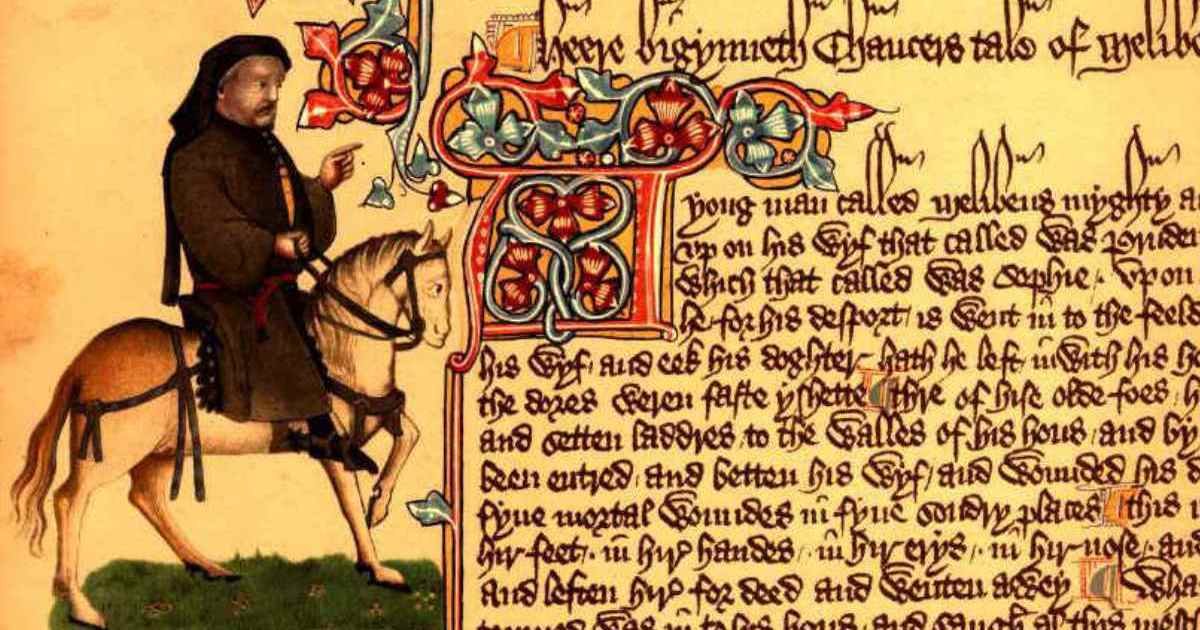 Heere bigynneth Chaucers tale of Melibe
yong man called Melibeus myghty a
vp on his wyf that called was Pruden
which that called was Sophie. Vpon
he for his desport is went in to the feeld
his wyf and eek his doghter hath he left inwith his h
the dores weren faste yshette thre of hise olde foes h
and setten laddres to the walles of his hous and by
been entred and betten his wyf and wounded his d
fyue mortal woundes in fyue sondry places this i
hir feet in hir handes in hir erys in hir nose an
and leften hir for deed and wenten awey Wha
torned was in to his hous and saugh al this mes